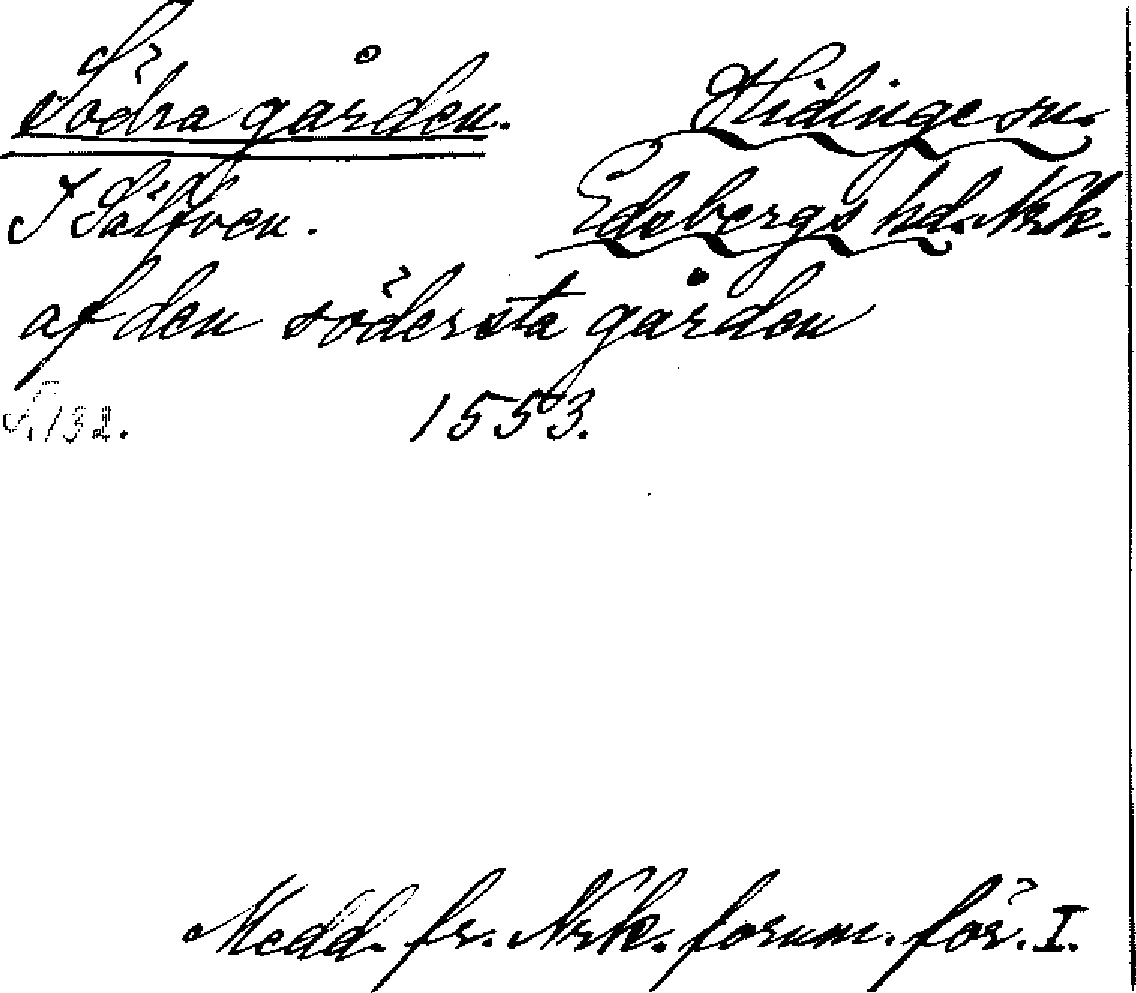 Södra gården. Hidinge sn.
I Sälfven. Edsbergs hd. Nrk.
af den södersta gården
S. 132. 1553.
Medd. fr. Nrk. fornm. för. I.